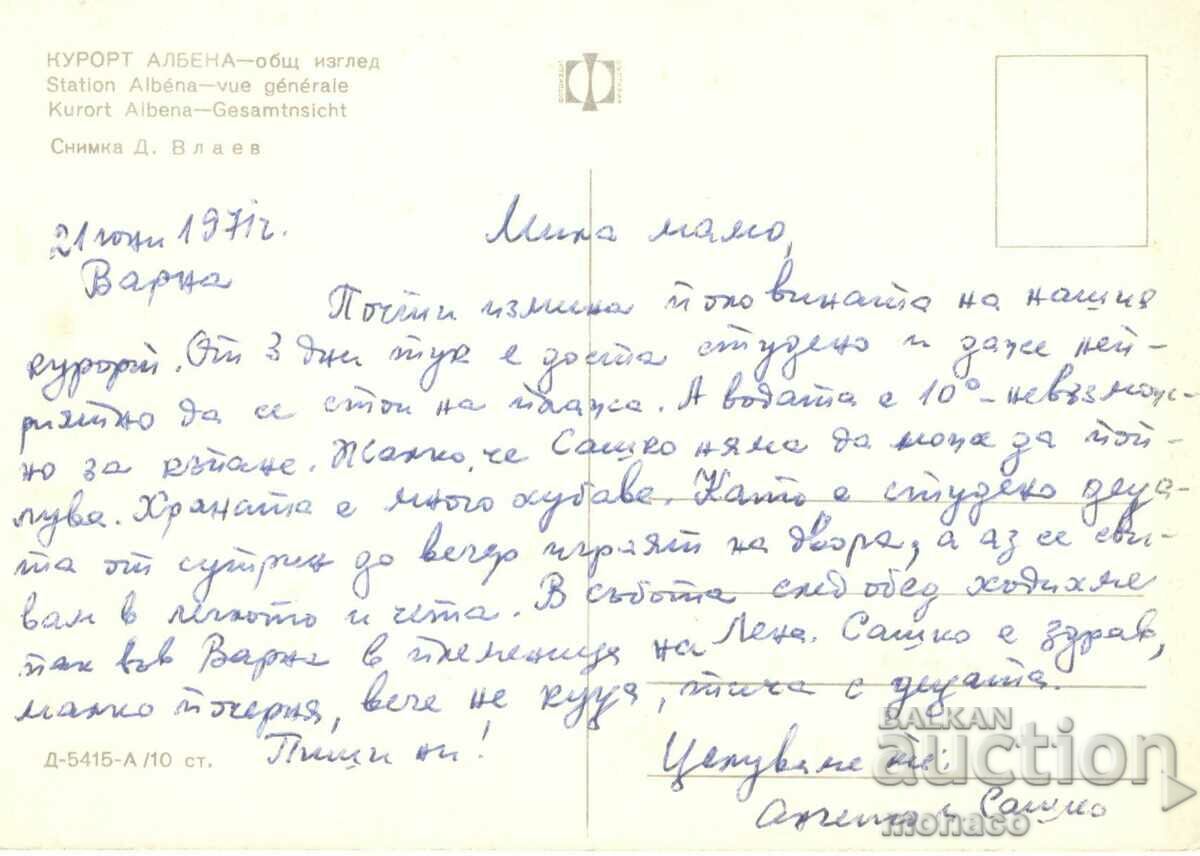 КУРОРТ АЛБЕНА—общ изглед
Station Albéna—vue générale
Kurort Albena—Gesamtnsicht
Снимка Д. Влаев
21 юни 1971г.
Варна
Мила мамо,
Почти измина половината на нашия
курорт. От 3 дни тук е доста студено и даже неп-
риятно да се стои на плажа. А водата е 10° - невъзмож-
но за къпане. Жалко, че Сашко няма да може да поп-
лува. Храната е много хубава. Като е студено деца-
та от сутрин до вечер играят на двора, а аз се сви-
вам в леглото и чета. В събота след обед ходихме
пак във Варна в племеница на Лена. Сашко е здрав,
малко почерня, вече не куца, тича с децата.
Пиши ни!
Целуваме те:
и Сашко
Д-5415-А/10 ст.
BALKAN
auction
monaco